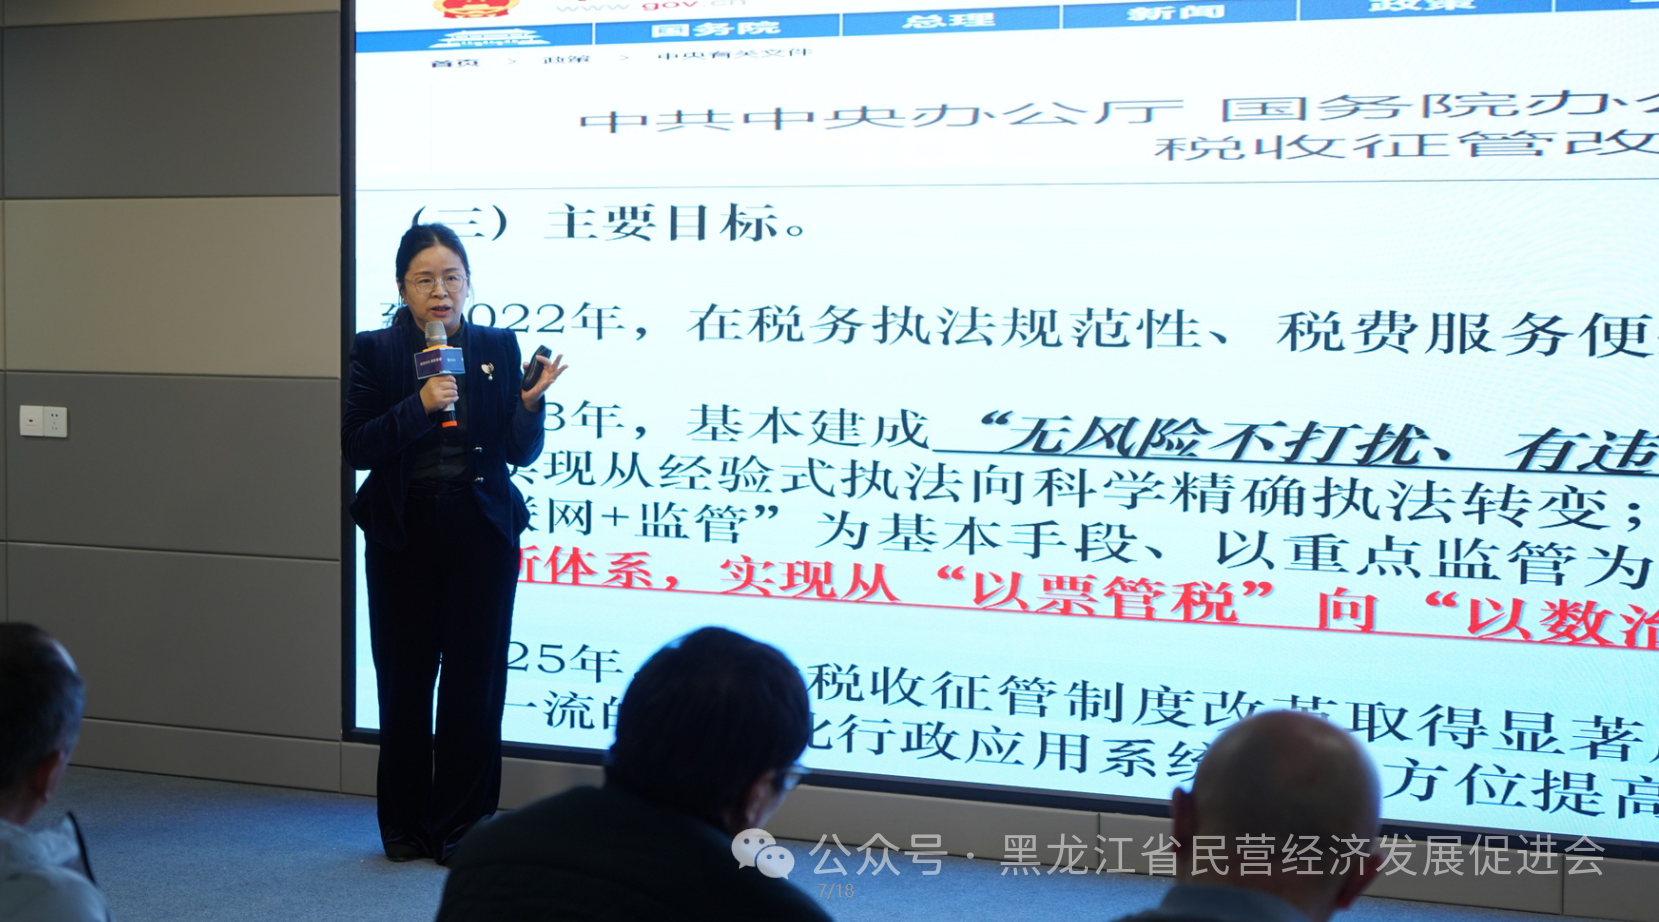 www.gov.cn
国务院 总理 新闻 政策
首页 > 政策 > 中央有关文件
中共中央办公厅 国务院办公
税收征管改
（三）主要目标。
到2022年，在税务执法规范性、税费服务便
3年，基本建成“无风险不打扰、有违
实现从经验式执法向科学精确执法转变；
联网+监管”为基本手段、以重点监管为
新体系，实现从“以票管税”向“以数治
25年 税收征管制度改革取得显著
一流的 化行政应用系统 方位提高
公众号 · 黑龙江省民营经济发展促进会
7/18